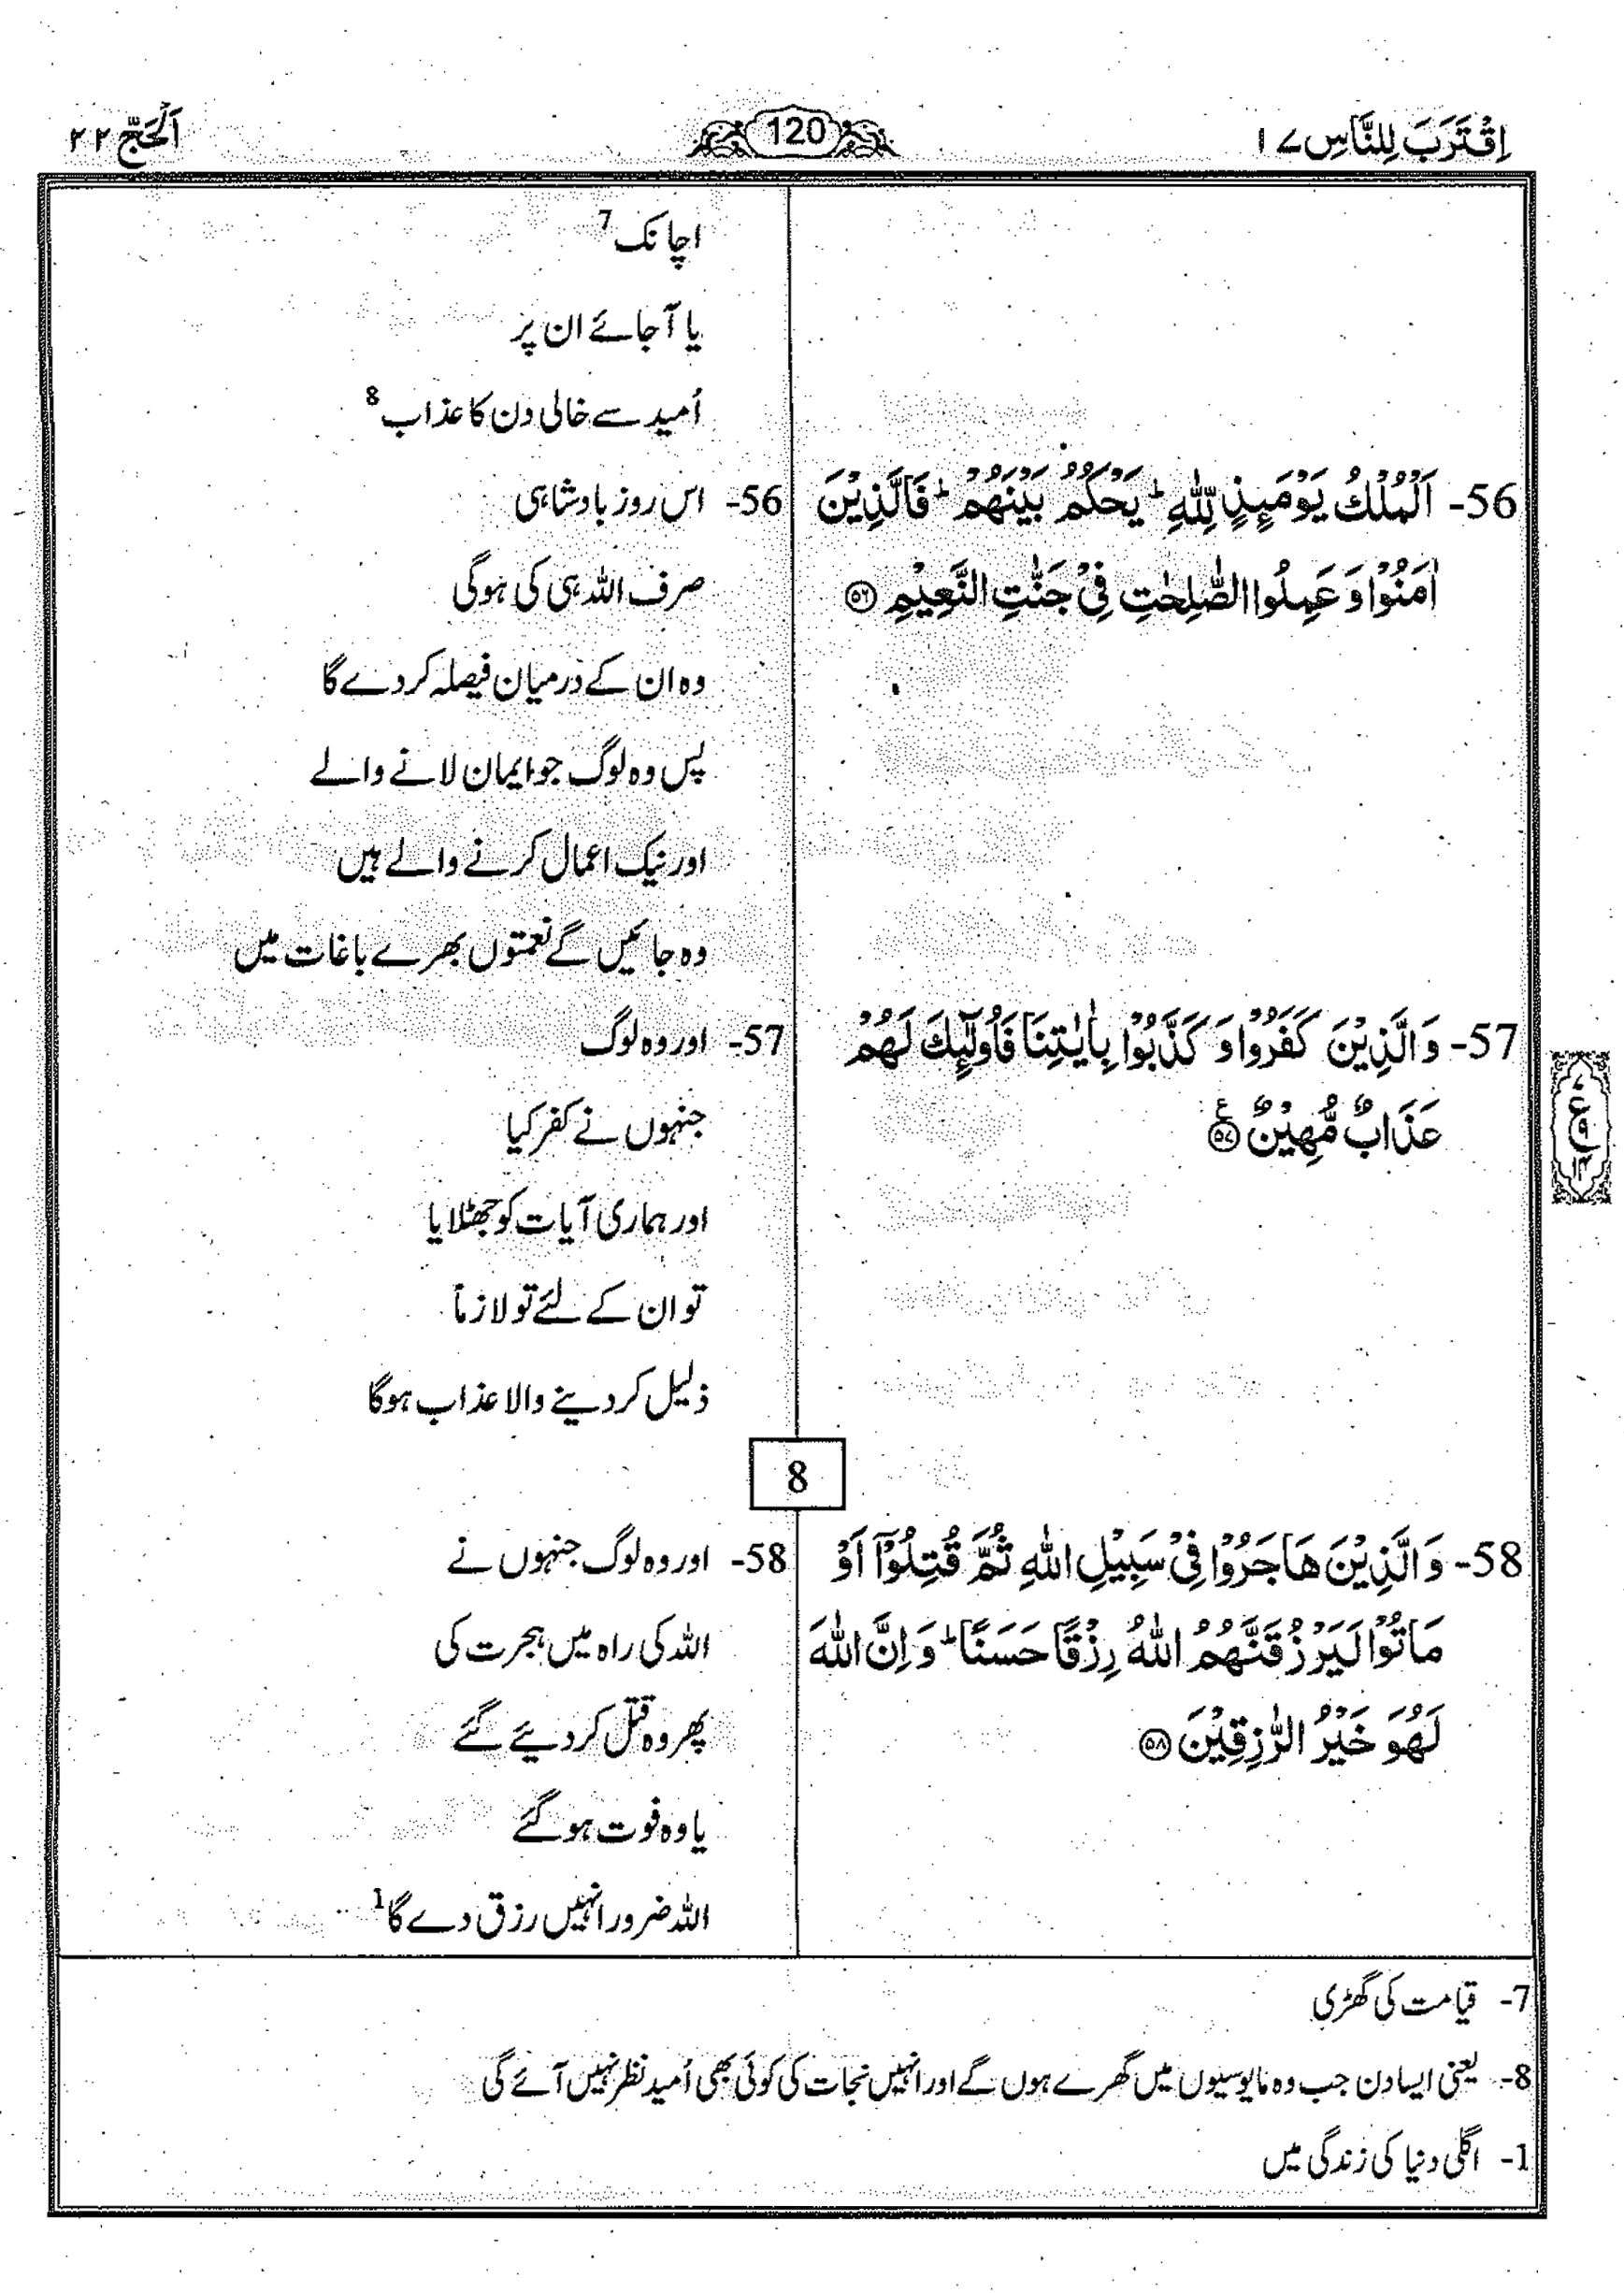 اِقْتَرَبَ لِلنَّاسِ ١٧
120
اَلْحَجّ ٢٢
اچانک 7
یا آجائے ان پر
اُمید سے خالی دن کا عذاب 8
56- اَلْمُلْكُ يَوْمَىِٕذٍ لِّلّٰهِ ؕ يَحْكُمُ بَيْنَهُمْ ؕ فَالَّذِيْنَ
اٰمَنُوْا وَ عَمِلُوا الصّٰلِحٰتِ فِيْ جَنّٰتِ النَّعِيْمِ ۝٥٦
56- اس روز بادشاہی
صرف اللہ ہی کی ہوگی
وہ ان کے درمیان فیصلہ کر دے گا
پس وہ لوگ جو ایمان لانے والے
اور نیک اعمال کرنے والے ہیں
وہ جائیں گے نعمتوں بھرے باغات میں
57- وَ الَّذِيْنَ كَفَرُوْا وَ كَذَّبُوْا بِاٰيٰتِنَا فَاُولٰٓىِٕكَ لَهُمْ
عَذَابٌ مُّهِيْنٌ ۝٥٧ ع
57- اور وہ لوگ
جنہوں نے کفر کیا
اور ہماری آیات کو جھٹلایا
تو ان کے لئے تو لازماً
ذلیل کر دینے والا عذاب ہوگا
8
58- وَ الَّذِيْنَ هَاجَرُوْا فِيْ سَبِيْلِ اللّٰهِ ثُمَّ قُتِلُوْۤا اَوْ
مَاتُوْا لَيَرْزُقَنَّهُمُ اللّٰهُ رِزْقًا حَسَنًا ؕ وَ اِنَّ اللّٰهَ
لَهُوَ خَيْرُ الرّٰزِقِيْنَ ۝٥٨
58- اور وہ لوگ جنہوں نے
اللہ کی راہ میں ہجرت کی
پھر وہ قتل کر دیئے گئے
یا وہ فوت ہو گئے
اللہ ضرور انہیں رزق دے گا 1
7- قیامت کی گھڑی
8- یعنی ایسا دن جب وہ مایوسیوں میں گھرے ہوں گے اور انہیں نجات کی کوئی بھی اُمید نظر نہیں آئے گی
1- اگلی دنیا کی زندگی میں